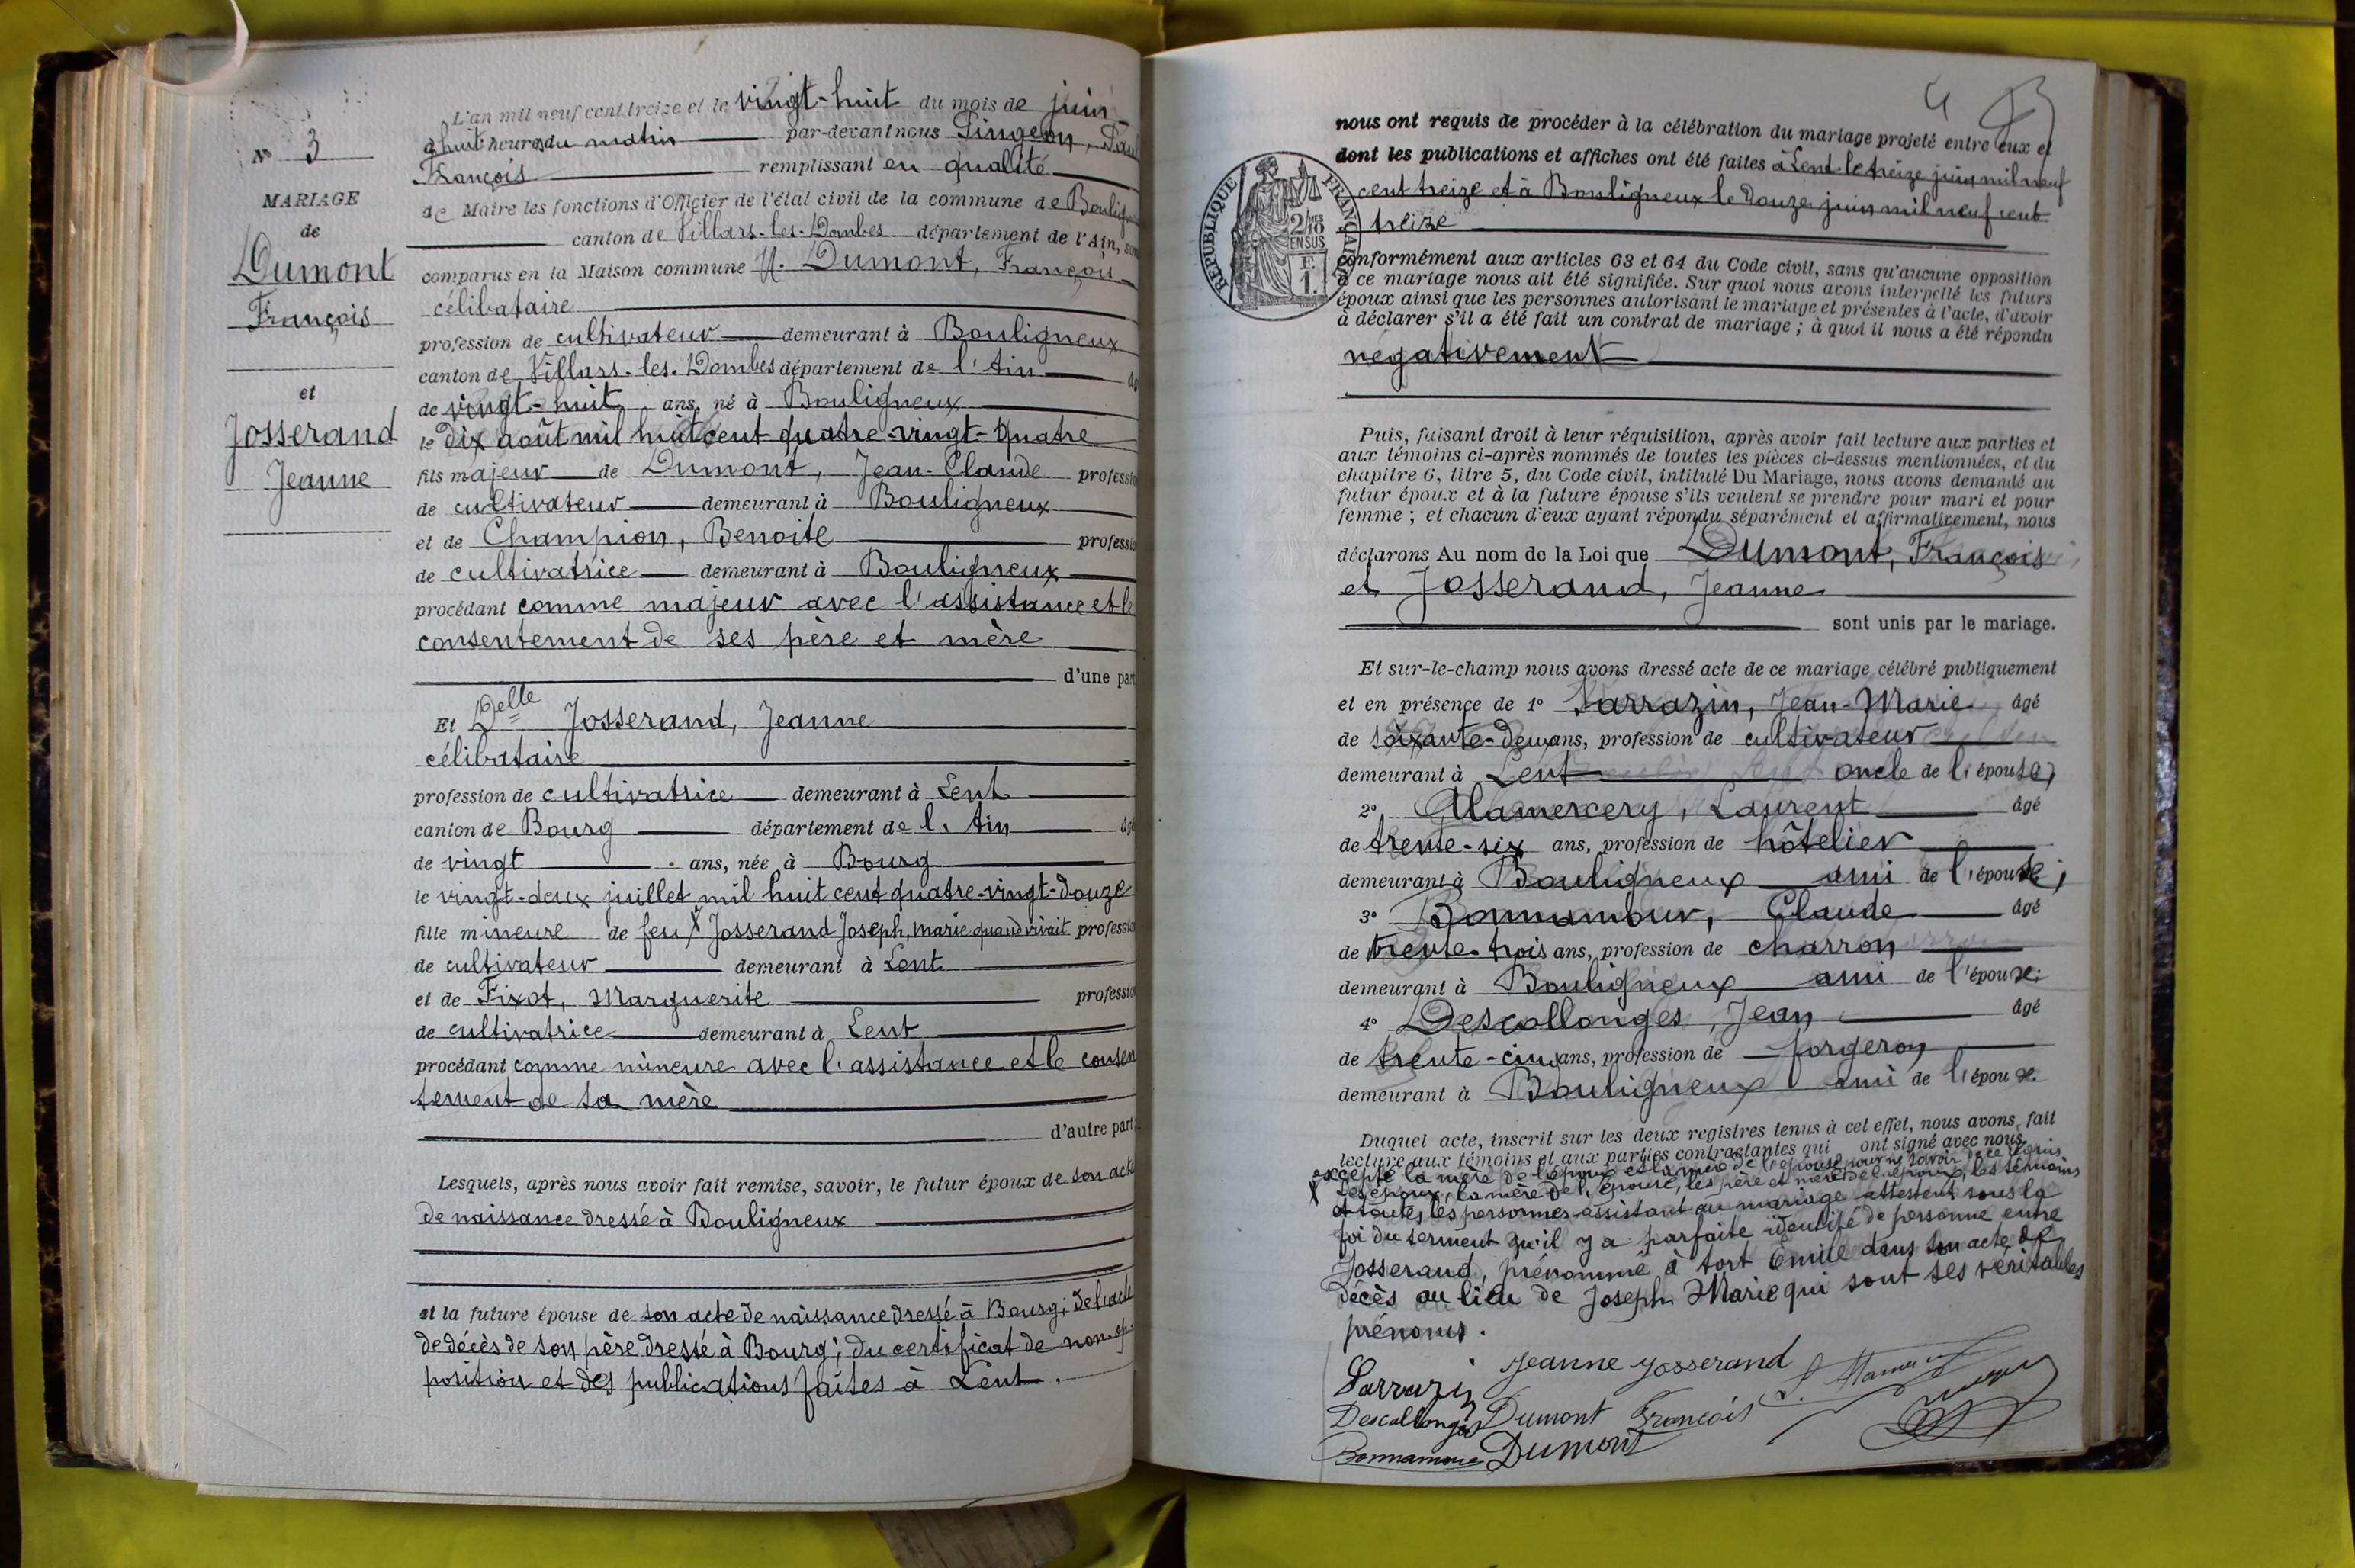 L'an mil neuf cent treize et le vingt-huit du mois de juin
à huit heures du matin par-devant nous Pingeon, Paul
François remplissant en qualité
de Maire les fonctions d'Officier de l'état civil de la commune de Bouligneux
canton de Villars-les-Dombes département de l'Ain, sont
comparus en la Maison commune M. Dumont, François
célibataire
profession de cultivateur demeurant à Bouligneux
canton de Villars-les-Dombes département de l'Ain
de vingt-huit ans, né à Bouligneux
le dix août mil huit cent quatre-vingt-quatre
fils majeur de Dumont, Jean-Claude profession
de cultivateur demeurant à Bouligneux
et de Champion, Benoite profession
de cultivatrice demeurant à Bouligneux
procédant comme majeur avec l'assistance et le
consentement de ses père et mère
d'une part
Et Delle Josserand, Jeanne
célibataire
profession de cultivatrice demeurant à Lent
canton de Bourg département de l'Ain âgé
de vingt ans, née à Bourg
le vingt-deux juillet mil huit cent quatre-vingt-douze
fille mineure de feu X Josserand Joseph, Marie quand vivait profession
de cultivateur demeurant à Lent
et de Fixot, Marguerite profession
de cultivatrice demeurant à Lent
procédant comme mineure avec l'assistance et le consen
tement de sa mère
d'autre part
Lesquels, après nous avoir fait remise, savoir, le futur époux de son acte
de naissance dressé à Bouligneux
et la future épouse de son acte de naissance dressé à Bourg; de l'acte
de décès de son père dressé à Bourg; du certificat de non-op-
position et des publications faites à Lent.
N° 3
MARIAGE
de
Dumont
François
et
Josserand
Jeanne
4
nous ont requis de procéder à la célébration du mariage projeté entre eux et
dont les publications et affiches ont été faites à Lent le treize juin mil neuf
cent treize et à Bouligneux le douze juin mil neuf cent
treize
RÉPUBLIQUE FRANÇAISE
2/10MES
EN SUS
F
1.
conformément aux articles 63 et 64 du Code civil, sans qu'aucune opposition
à ce mariage nous ait été signifiée. Sur quoi nous avons interpellé les futurs
époux ainsi que les personnes autorisant le mariage et présentes à l'acte, d'avoir
à déclarer s'il a été fait un contrat de mariage ; à quoi il nous a été répondu
négativement
Puis, faisant droit à leur réquisition, après avoir fait lecture aux parties et
aux témoins ci-après nommés de toutes les pièces ci-dessus mentionnées, et du
chapitre 6, titre 5, du Code civil, intitulé Du Mariage, nous avons demandé au
futur époux et à la future épouse s'ils veulent se prendre pour mari et pour
femme ; et chacun d'eux ayant répondu séparément et affirmativement, nous
déclarons Au nom de la Loi que Dumont, François
et Josserand, Jeanne
sont unis par le mariage.
Et sur-le-champ nous avons dressé acte de ce mariage célébré publiquement
et en présence de 1° Sarrazin, Jean-Marie âgé
de soixante-deux ans, profession de cultivateur
demeurant à Lent oncle de l'épouse;
2° Mamercery, Laurent âgé
de trente-six ans, profession de hôtelier
demeurant à Bouligneux ami de l'épouse;
3° Bonnamour, Claude âgé
de trente-trois ans, profession de charron
demeurant à Bouligneux ami de l'épouse;
4° Descollonges, Jean âgé
de trente-cinq ans, profession de forgeron
demeurant à Bouligneux ami de l'épouse.
Duquel acte, inscrit sur les deux registres tenus à cet effet, nous avons fait
lecture aux témoins et aux parties contractantes qui ont signé avec nous
excepté la mère de l'époux et la mère de l'épouse pour ne savoir de ce requis.
X Les époux, la mère de l'épouse, les père et mère de l'époux, les témoins
et toutes les personnes assistant au mariage attestent sous la
foi du serment qu'il y a parfaite identité de personne entre
Josserand, prénommé à tort Emile dans son acte de
décès au lieu de Joseph Marie qui sont ses véritables
prénoms.
Sarrazin Jeanne Josserand
Descollonges Dumont François
Bonnamour Dumont